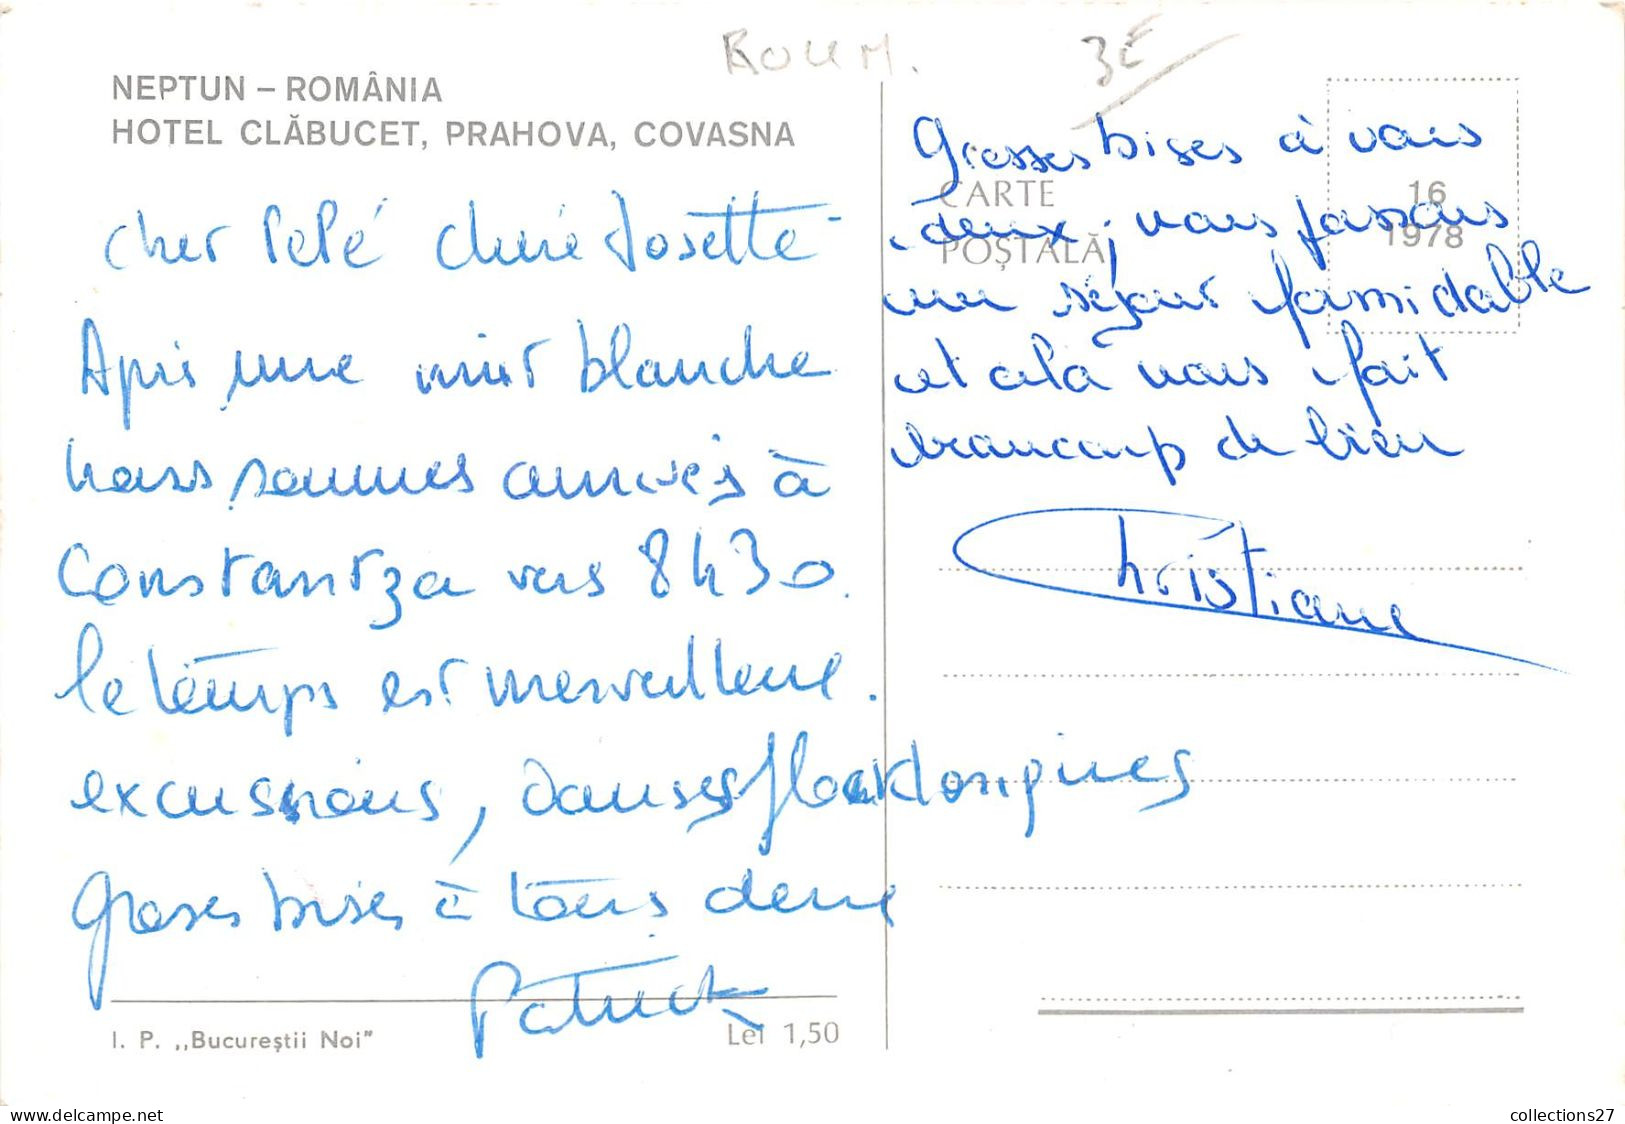 ROUM.
3€
NEPTUN – ROMÂNIA
HOTEL CLĂBUCET, PRAHOVA, COVASNA
Cher Pépé chère Josette
Après une nuit blanche
nous sommes arrivés à
Constantza vers 8h30.
le temps est merveilleux.
excursions, danses flokloriques
Grosses bises à tous deux
Patrick
I. P. „Bucureştii Noi"
Lei 1,50
CARTE
POŞTALĂ
16
1978
Grosses bises à vous
deux, nous passons
un séjour formidable
et cela nous fait
beaucoup de bien
Christiane
collections27